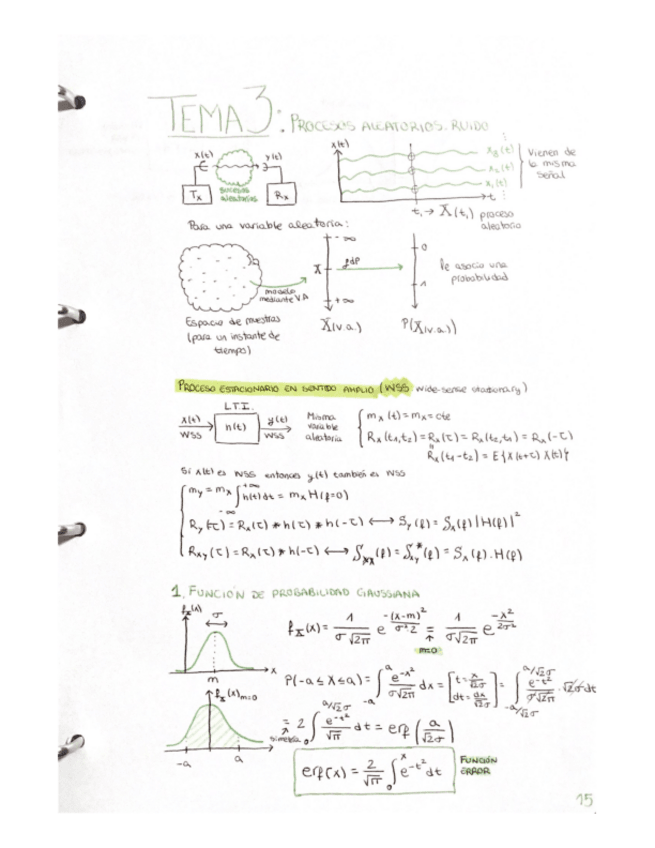 TEMA 3: PROCESOS ALEATORIOS. RUIDO
x(t) y(t)
Tx Rx
sucesos
aleatorios
x(t)
x₃(t)
x₂(t)
x₁(t)
t
Vienen de
la misma
señal
t₁ → X(t₁) proceso
aleatorio
Para una variable aleatoria:
-∞
X
+∞
fdp
0
1
le asocio una
probabilidad
modelo
mediante V.A
Espacio de muestras
(para un instante de
tiempo)
X(v.a.)
P(X(v.a))
PROCESO ESTACIONARIO EN SENTIDO AMPLIO (WSS wide-sense stationary)
L.T.I.
x(t) h(t) y(t)
WSS WSS
Misma
variable
aleatoria
mx(t) = mx = cte
Rx(t₁,t₂) = Rx(τ) = Rx(t₂,t₁) = Rx(-τ)
Rx(t₁-t₂) = E{X(t+τ) X(t)}
Si x(t) es WSS entonces y(t) también es WSS
my = mx ∫_{-∞}^{+∞} h(t)dt = mx H(f=0)
Ry(τ) = Rx(τ) * h(τ) * h(-τ) ⟷ Sy(f) = Sx(f)|H(f)|²
Rxy(τ) = Rx(τ) * h(-τ) ⟷ = Sxy*(f) = Sx(f).H(f)
1. FUNCIÓN DE PROBABILIDAD GAUSSIANA
fx(x)
σ
m
x
fx(x) = 1/(σ√2π) e^{-(x-m)²/σ²2} = 1/(σ√2π) e^{-x²/2σ²}
m=0
P(-a≤X≤a) = ∫_{-a}^{a} e^{-x²}/(σ√2π) dx = [t = x/√2σ  dt = dx/√2σ] = ∫_{-a/√2σ}^{a/√2σ} e^{-t²}/(σ√2π) · √2σ dt
fx(x) m=0
-a a
= 2 ∫_{0}^{a/√2σ} e^{-t²}/√π dt = erf(a/√2σ)
simetría
erf(x) = 2/√π ∫_{0}^{x} e^{-t²} dt
FUNCIÓN
ERROR
15